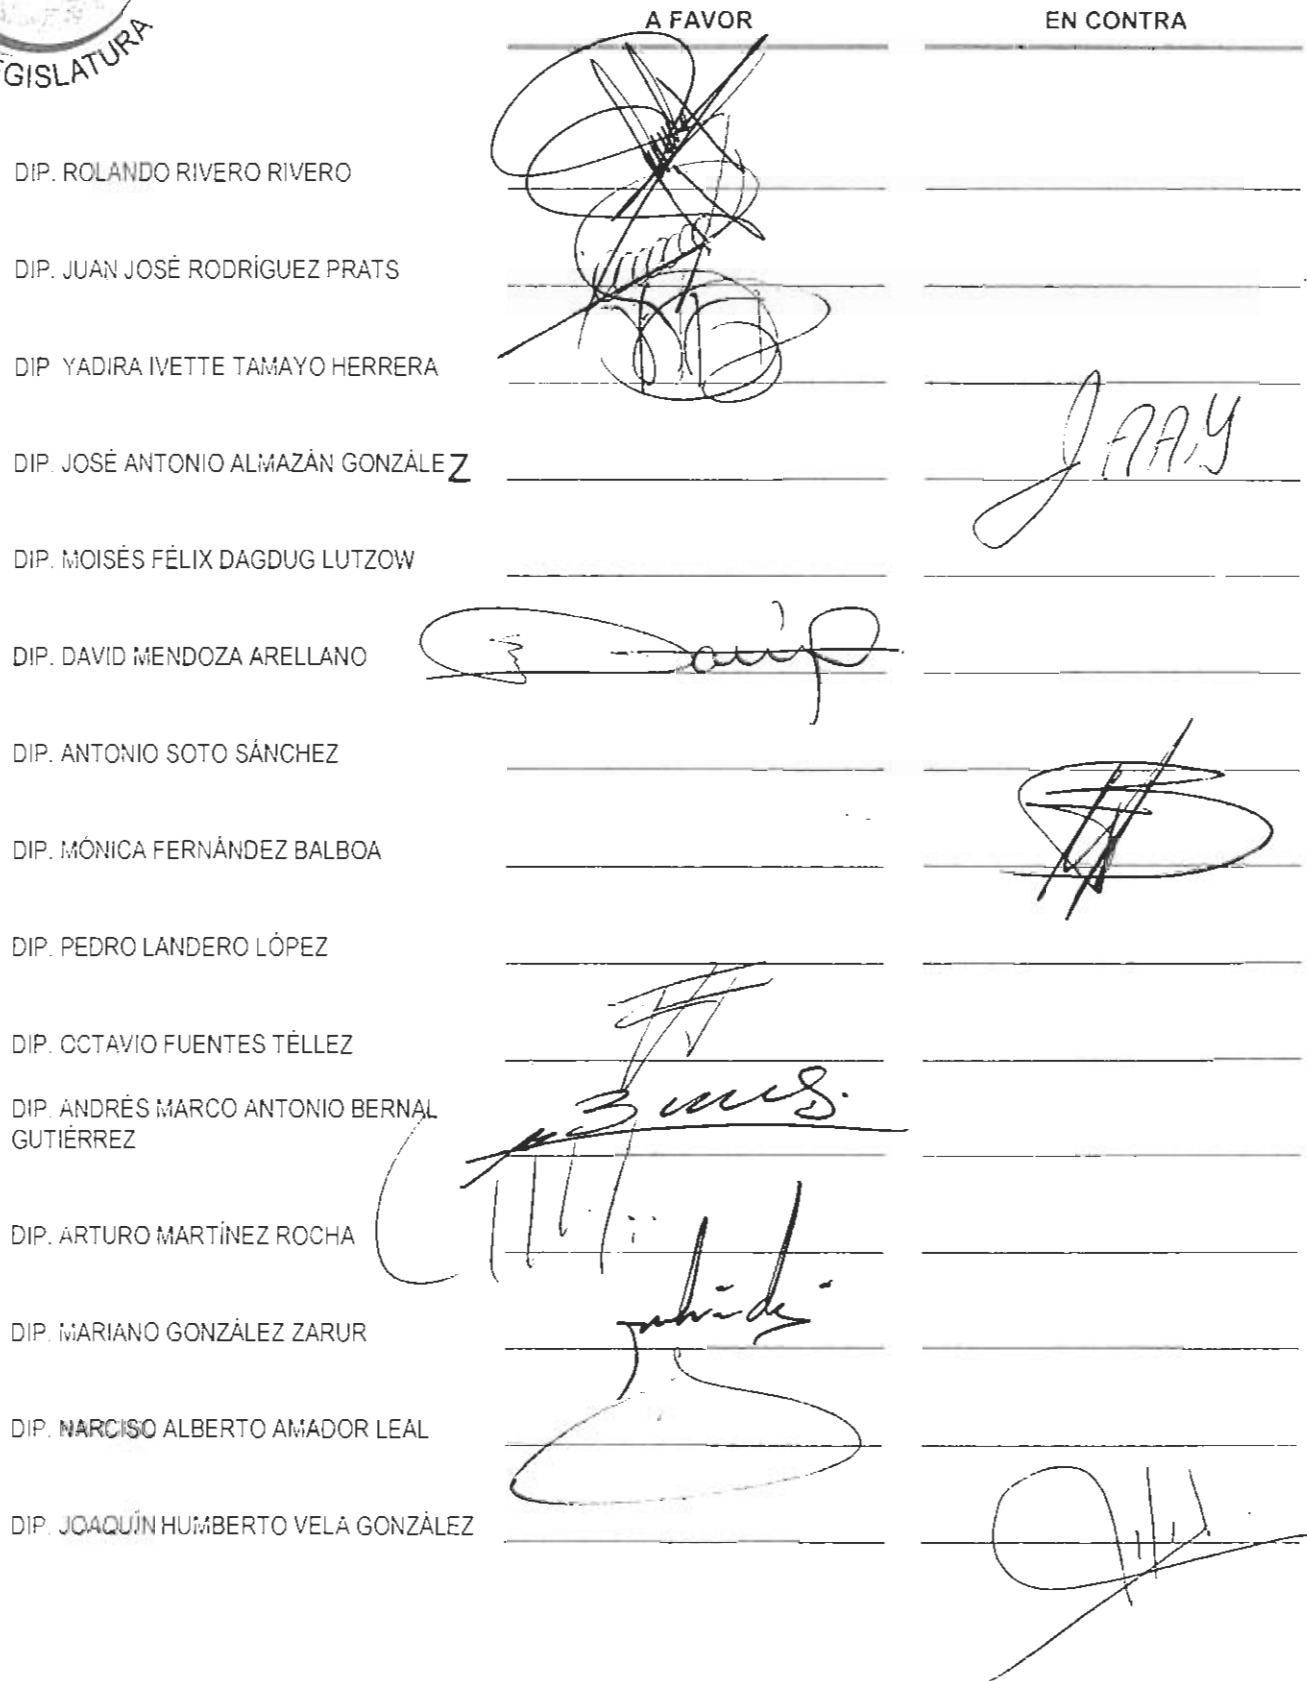 GISLATURA
A FAVOR EN CONTRA
DIP. ROLANDO RIVERO RIVERO
DIP. JUAN JOSÉ RODRÍGUEZ PRATS
DIP YADIRA IVETTE TAMAYO HERRERA
DIP. JOSÉ ANTONIO ALMAZÁN GONZÁLEZ
DIP. MOISÉS FÉLIX DAGDUG LUTZOW
DIP. DAVID MENDOZA ARELLANO
DIP. ANTONIO SOTO SÁNCHEZ
DIP. MÓNICA FERNÁNDEZ BALBOA
DIP. PEDRO LANDERO LÓPEZ
DIP. OCTAVIO FUENTES TÉLLEZ
DIP. ANDRÉS MARCO ANTONIO BERNAL
GUTIÉRREZ
DIP. ARTURO MARTÍNEZ ROCHA
DIP. MARIANO GONZÁLEZ ZARUR
DIP. NARCISO ALBERTO AMADOR LEAL
DIP. JOAQUÍN HUMBERTO VELA GONZÁLEZ